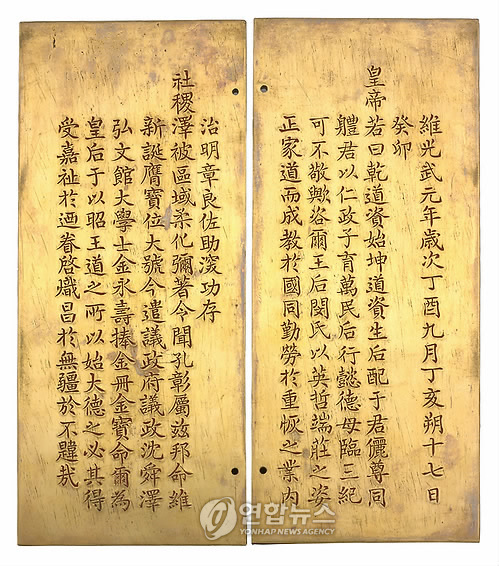 維光武元年歲次丁酉九月丁亥朔十七日
癸卯
皇帝若曰乾道資始坤道資生后配于君儷尊同
軆君以仁政子育萬民后行懿德母臨三紀
可不敬歟咨爾王后閔氏以英哲端莊之姿
正家道而成敎於國同勤勞於重恢之業內
治明章良佐助㴱功存
社稷澤被區域柔化彌著令聞孔彰屬玆邦命維
新誕膺寶位大號今遣議政府議政沈舜澤
弘文館大學士金永壽捧金冊金寶命爾為
皇后于以昭王道之所以始大德之必其得
受嘉祉於迺眷啓熾昌於無疆於不韙哉
연합뉴스
YONHAP NEWS AGENCY